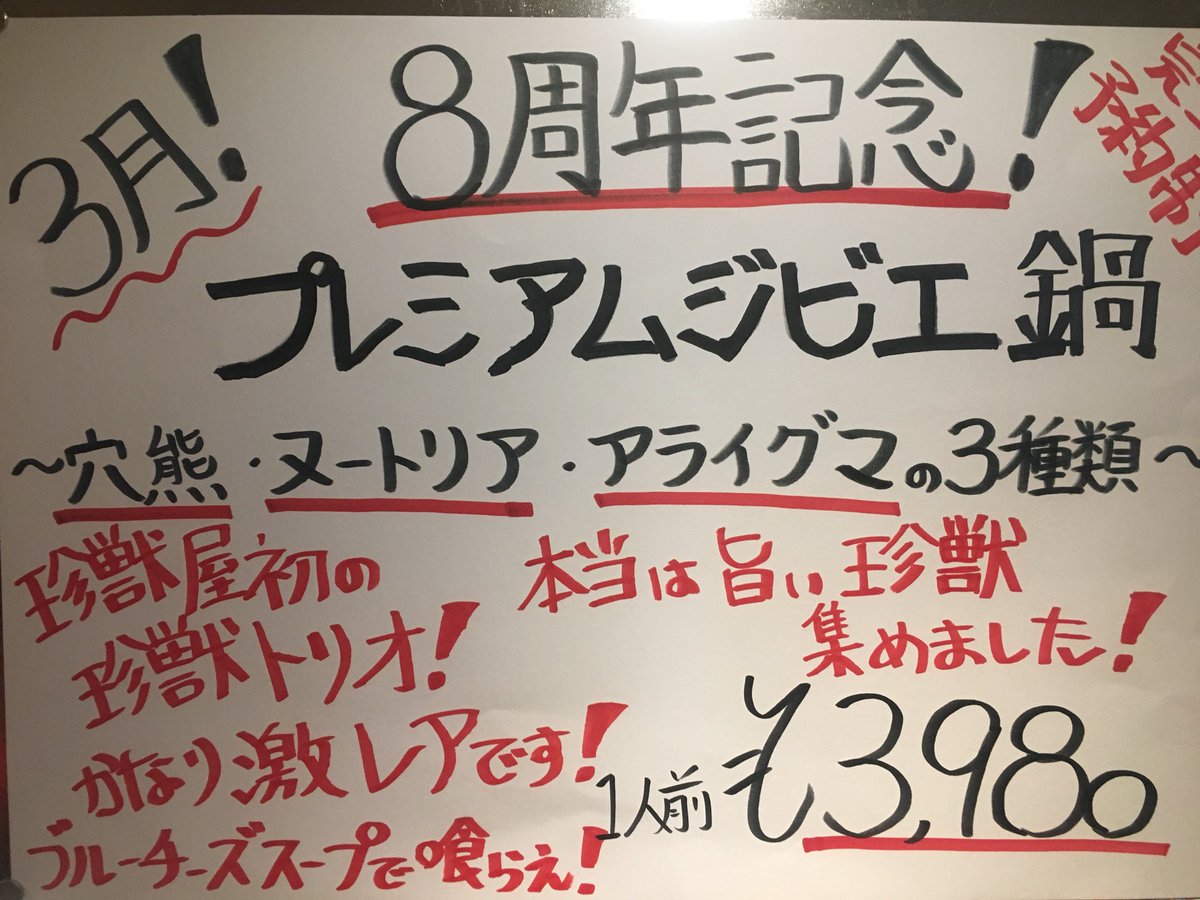 3月!
8周年記念!
予約制
プレミアムジビエ鍋
〜穴熊・ヌートリア・アライグマの3種類〜
珍獣屋初の
珍獣トリオ!
本当は旨い珍獣
集めました!
かなり激レアです!
ブルーチーズスープで喰らえ!
1人前 ¥3,980